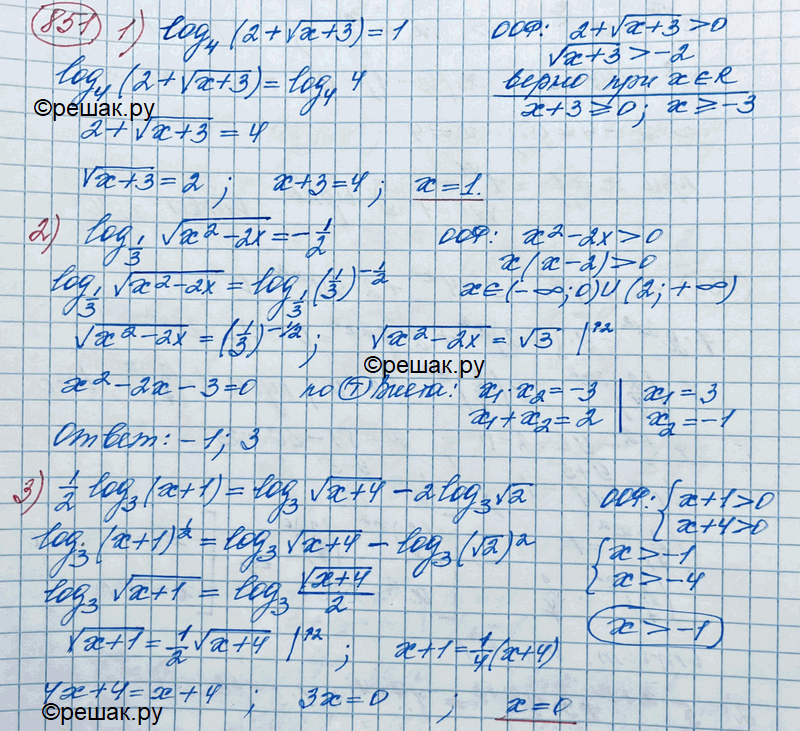 851 1) log₄(2+√(x+3))=1 ООФ: 2+√(x+3)>0
√(x+3)>-2
log₄(2+√(x+3))=log₄4 верно при x∈R
©решак.ру x+3≥0; x≥-3
2+√(x+3)=4
√(x+3)=2; x+3=4; x=1.
2) log_{1/3} √(x²-2x)=-1/2 ООФ: x²-2x>0
x(x-2)>0
log_{1/3} √(x²-2x)=log_{1/3}(1/3)^{-1/2} x∈(-∞;0)∪(2;+∞)
√(x²-2x)=(1/3)^{-1/2}; √(x²-2x)=√3 |↑2
©решак.ру
x²-2x-3=0 по Т Виета: x₁·x₂=-3 | x₁=3
x₁+x₂=2 | x₂=-1
Ответ: -1; 3
3) 1/2 log₃(x+1)=log₃√(x+4)-2log₃√2 ООФ: {x+1>0
x+4>0
log₃(x+1)^{1/2}=log₃√(x+4)-log₃(√2)² {x>-1
x>-4
log₃√(x+1)=log₃ √(x+4)/2
x>-1
√(x+1)=1/2√(x+4) |↑2; x+1=1/4(x+4)
4x+4=x+4; 3x=0; x=0
©решак.ру